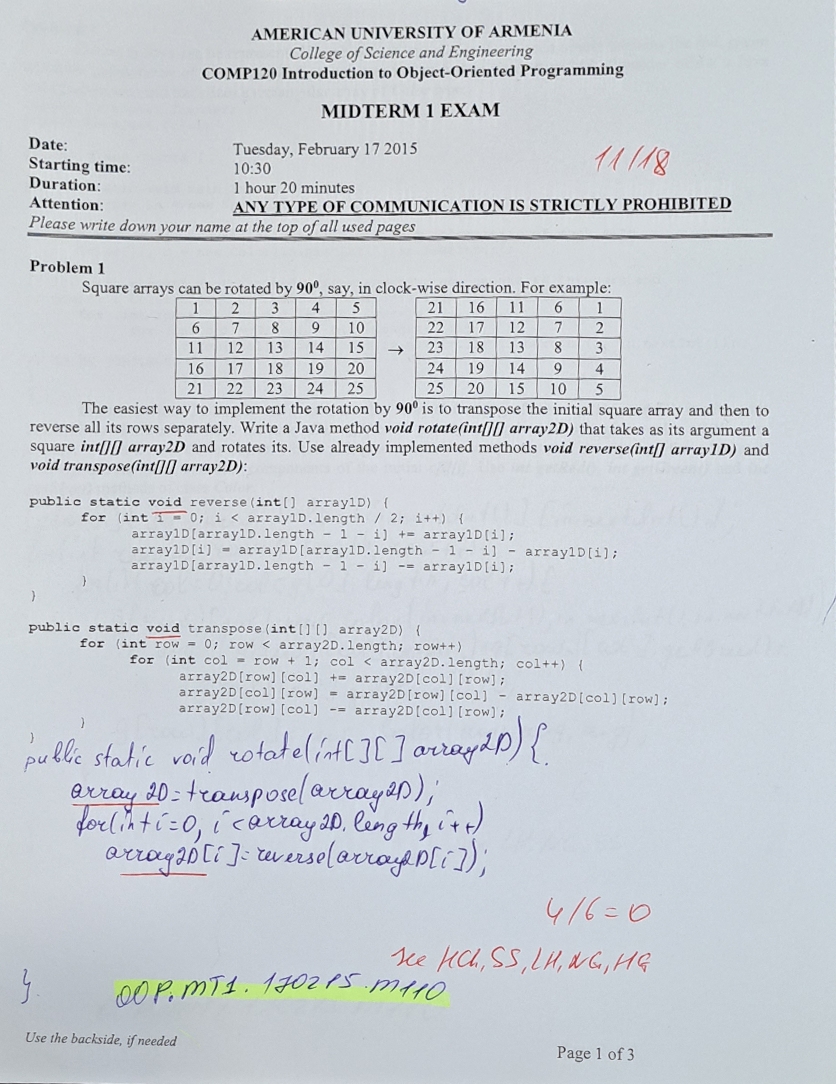 AMERICAN UNIVERSITY OF ARMENIA
College of Science and Engineering
COMP120 Introduction to Object-Oriented Programming
MIDTERM 1 EXAM
Date: Tuesday, February 17 2015
11/18
Starting time: 10:30
Duration: 1 hour 20 minutes
Attention: ANY TYPE OF COMMUNICATION IS STRICTLY PROHIBITED
Please write down your name at the top of all used pages
Problem 1
Square arrays can be rotated by 90⁰, say, in clock-wise direction. For example:
1 2 3 4 5 21 16 11 6 1
6 7 8 9 10 22 17 12 7 2
11 12 13 14 15 → 23 18 13 8 3
16 17 18 19 20 24 19 14 9 4
21 22 23 24 25 25 20 15 10 5
The easiest way to implement the rotation by 90⁰ is to transpose the initial square array and then to
reverse all its rows separately. Write a Java method void rotate(int[][] array2D) that takes as its argument a
square int[][] array2D and rotates its. Use already implemented methods void reverse(int[] array1D) and
void transpose(int[][] array2D):
public static void reverse(int[] array1D) {
for (int i = 0; i < array1D.length / 2; i++) {
array1D[array1D.length - 1 - i] += array1D[i];
array1D[i] = array1D[array1D.length - 1 - i] - array1D[i];
array1D[array1D.length - 1 - i] -= array1D[i];
}
}
public static void transpose(int[][] array2D) {
for (int row = 0; row < array2D.length; row++)
for (int col = row + 1; col < array2D.length; col++) {
array2D[row][col] += array2D[col][row];
array2D[col][row] = array2D[row][col] - array2D[col][row];
array2D[row][col] -= array2D[col][row];
}
}
public static void rotate(int[][] array2D) {
array 2D = transpose(array2D);
for(int i=0, i<array2D.length, i++)
array2D[i]=reverse(array2D[i]);
4/6=0
see HCh, SS, LH, NG, HG
}
OOP.MT1.170215.M110
Use the backside, if needed
Page 1 of 3